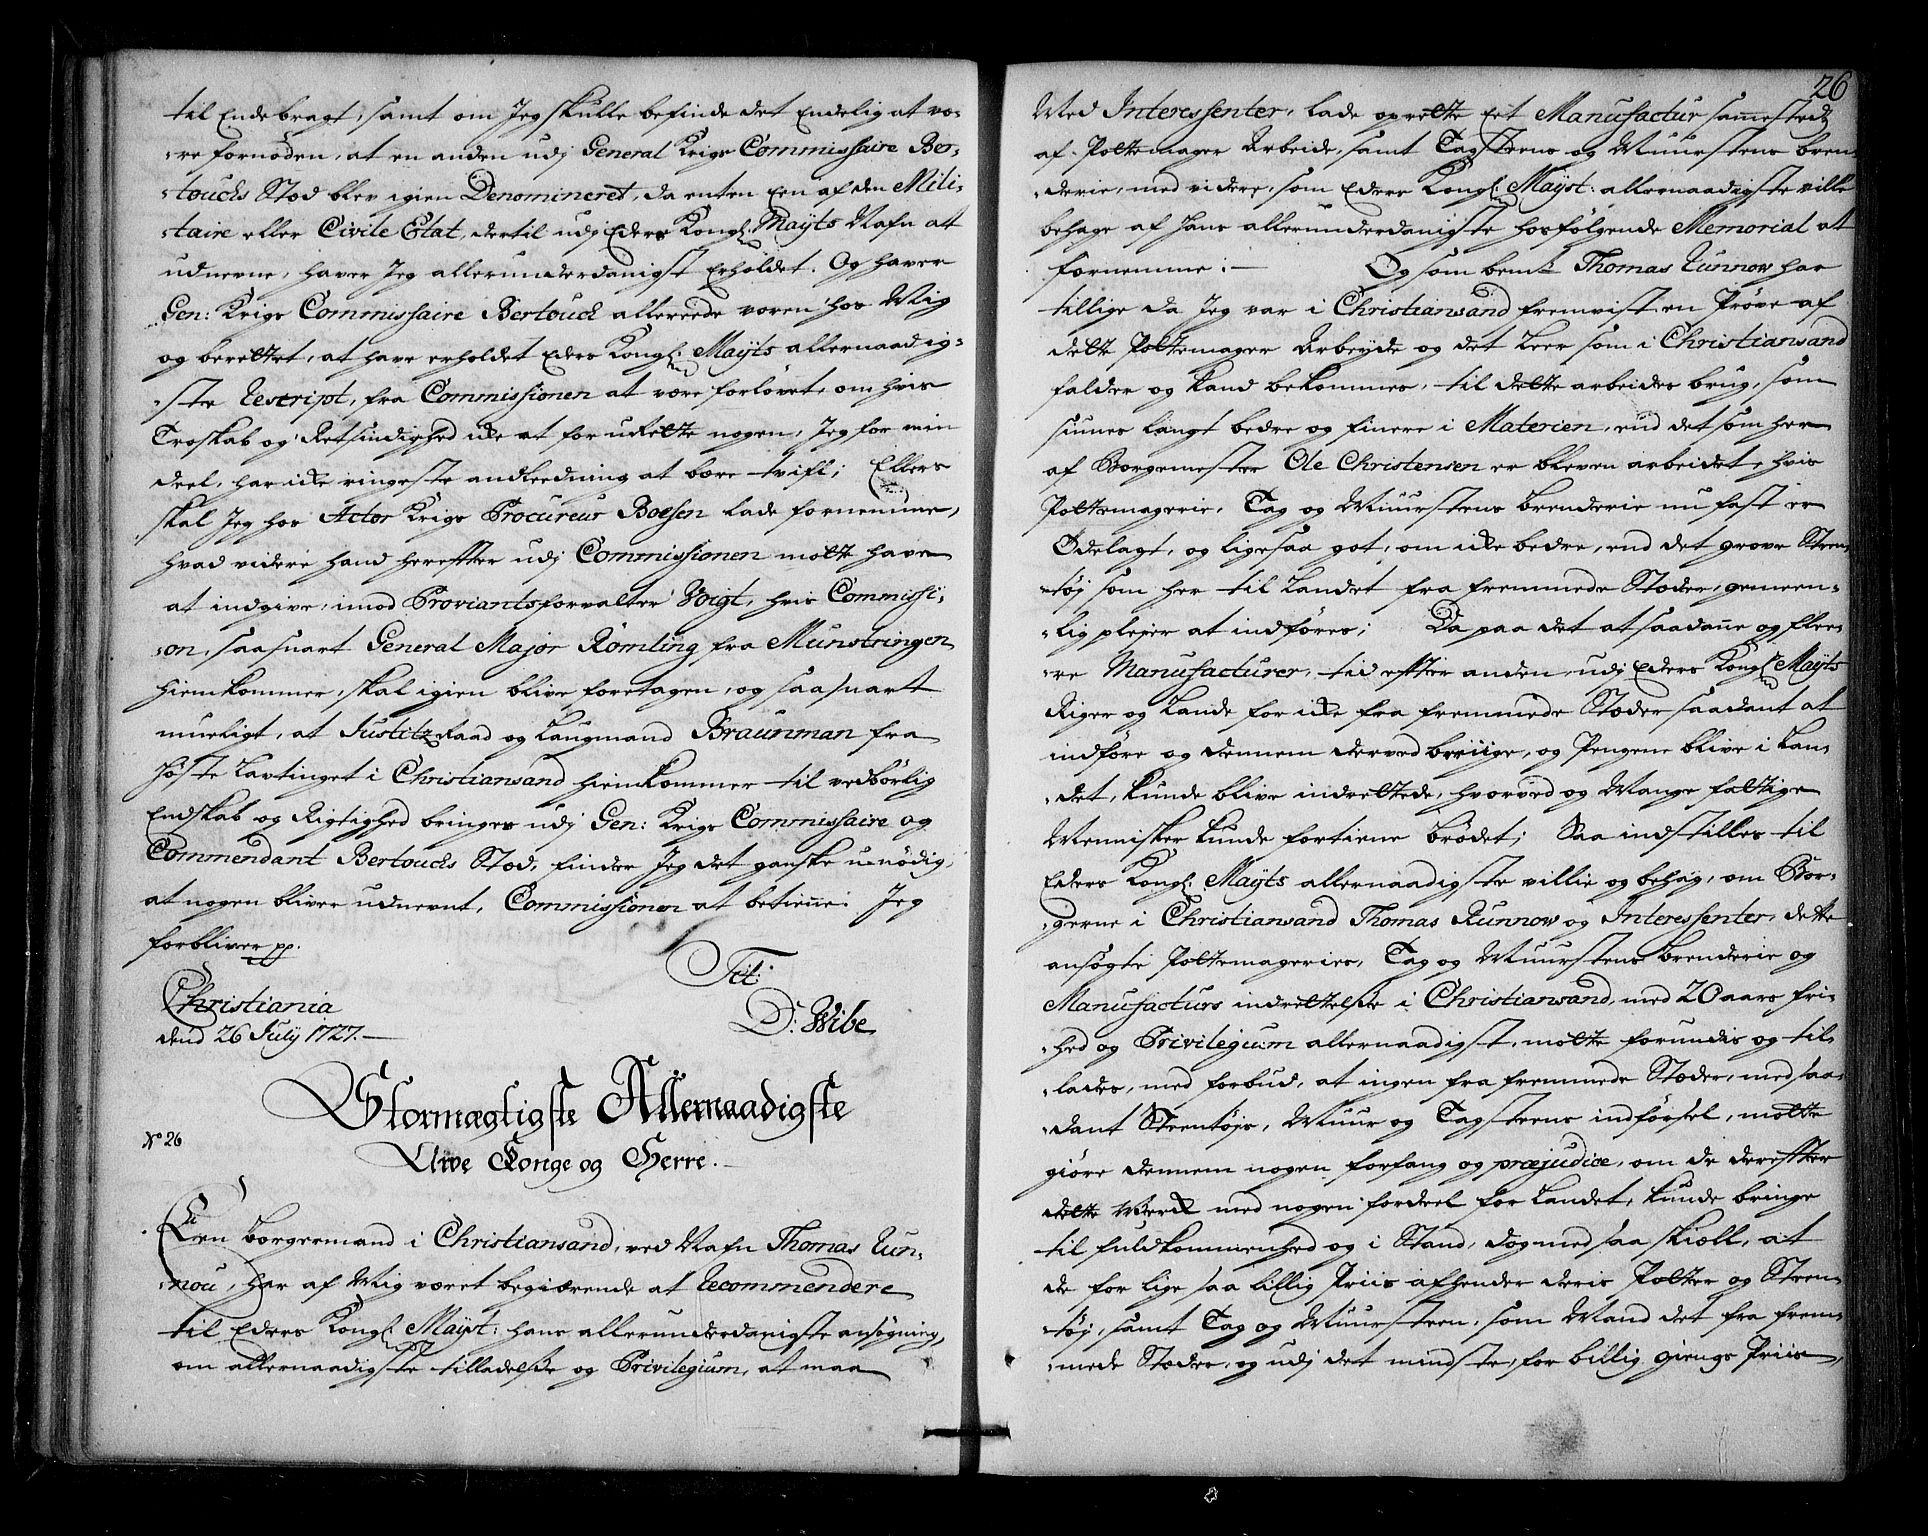 til Endebragt, samt om Jeg skulle befinde det Endelig at væ-
-re fornøden, at en anden udj General Krigs Commissaire Ber-
-touchs Stæd blev igien Denomineret, da enten Een af den Mili-
-taire eller Civile Etat, dertil udj Eders Kongl: Mayts Nafn att
udnevne, haver Jeg allerunderdanigst Erholdet. Og haver
Gen: Krigs Commissaire Bertouch allereede væren hos Mig
og berettet, at have erholdet Eders Kongl: Mayts allernaadig-
-ste Rescript, fra Commissionen at være forløvet, om hvis
Troskab og Retsindighed icke at forurette nogen, Jeg for min
deel, har icke ringeste anleedning at bære tvifl; Ellers
skal Jeg hos Actor Krigs Procureur Boesen lade fornemme,
hvad videre hand herefter udj Commissionen motte have
at indgive, imod Proviantsforvalter Voigt, hvis Commissi-
-on, saasnart General Major Rømling fra Munstringen
hiemkommer, skal igien blive foretagen, og saasnart
mueligt, at Justitz Raad og Laugmand Braunman fra
Høste Lavtinget i Christiansand hiemkommer til vedbørlig
Endskab og Rigtighed bringes udj Gen: Krigs Commissaire og
Commendant Bertouchs Stæd, finder Jeg det ganske unødig,
at nogen bliver udnevnt, Commissionen at betiene. Jeg
forbliver pp.
Tit:
Christiania
D: Wibe
dend 26 Julij 1727.
Stormægtigste Allernaadigste
No 26
Arve Konge og Herre.
Een borgermand i Christiansand, ved Nafn Thomas Run-
-nou, har af Mig været begiærende at Recommendere
til Eders Kongl: Mayst: hans allerunderdanigste ansøgning,
om allernaadigste tilladelse og Privilegium, at maa
26
Med Interessenter, lade oprette eet Manufactur sammesteds
af Pottemager Arbeide, samt Tagsteens og Muurstens bren-
-derie, med videre, som Eders Kongl: Mayst: allernaadigste ville
behage af hans allerunderdanigste hosfølgende Memorial at
fornemme: Og som bemte Thomas Runnow har
tillige da Jeg var i Christiansand fremvist en Prøve af
dette Pottemager Arbeyde og det Leer som i Christiansand
falder og kand bekommes, til dette arbeides brug, som
siunes langt bedre og finere i Materien, end det som her
af Borgemester Ole Christensen er bleven arbeidet, hvis
Pottemagerie, Tag og Muurstens brenderie nu fast er
Ødelagt, og ligesaa got, om icke bedre, end det grove Steen-
-tøj som her til Landet fra fremmede Stæder, gemeen-
-lig plejer at indføres; Da paa det at saadane og flee-
-re Manufacturer, tid efter anden, udj Eders Kongl: Mayts
Riger og Lande for icke fra fremmede Stæder saadant at
indføre og dennem derved bruge, og Pengene blive i Lan-
-det, kunde blive indrettede, hvorved og Mange fattige
Mennisker kunde fortiene brødet; Saa indstilles til
Eders Kongl: Mayts allernaadigste villie og behag, om Bor-
-gerne i Christiansand Thomas Runnow og Interessenter, dette
ansøgte Pottemageries, Tag og Muurstens brenderie og
Manufacturs indrettelse i Christiansand, med 20 aars fri-
-hed og Privilegium allernaadigst, motte forundis og til-
-lades, med forbud, at ingen fra fremmede Stæder, med saa-
-dant Steentøjs, Muur og Tagsteens indførsel, motte
giøre dennem nogen forfang og præjudice, om de derefter
dette Werck med nogen fordeel for Landet, kunde bringe
til fuldkommenhed og i Stand, dog med saa skiell, at
de for lige saa billig Priis afhender deris Potter og Steen-
-tøj, samt Tag og Muursteen, som Mand det fra frem-
-mede Stæder, og udj det mindste, for billig giengs Priis,